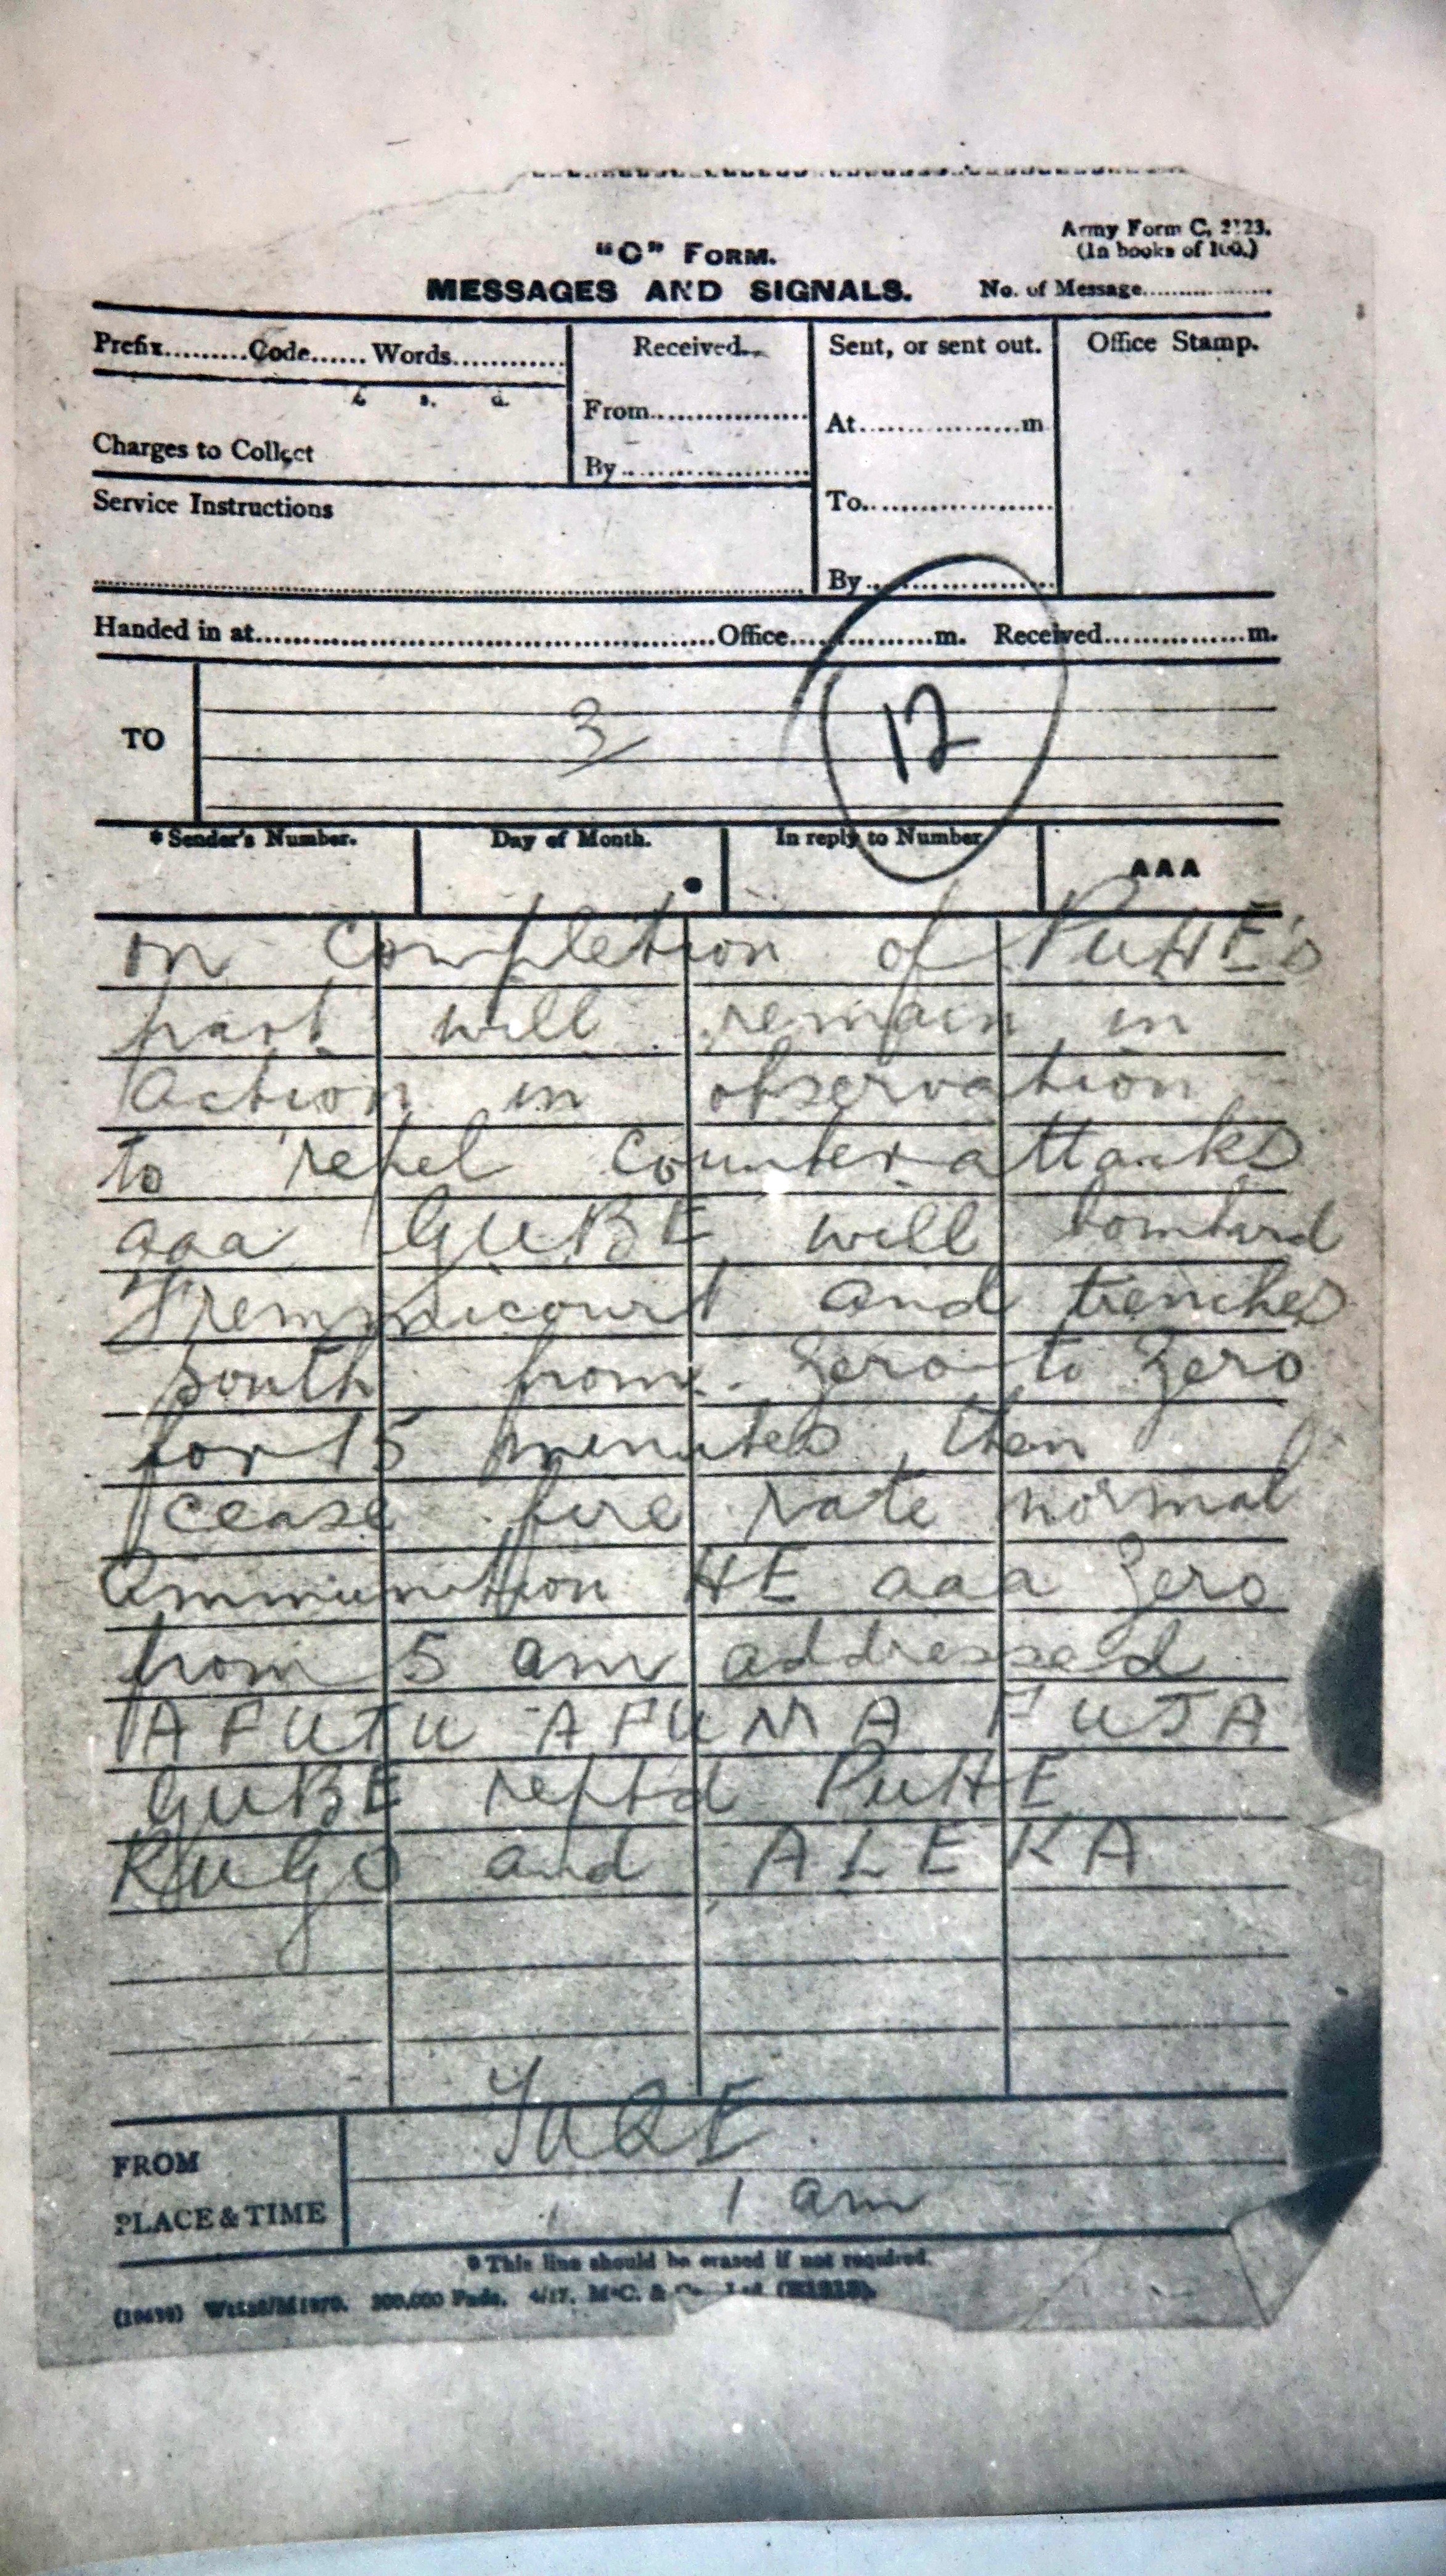 "C" FORM.
Army Form C. 2123.
(In books of 100.)
MESSAGES AND SIGNALS.
No. of Message
Prefix Code Words
Received
Sent, or sent out.
Office Stamp.
£ s. d.
From
At m
Charges to Collect
By
Service Instructions
To
By
Handed in at Office m. Received m.
TO
3
12
* Sender's Number.
Day of Month.
In reply to Number
AAA
on completion of PUHE's
part will remain in
action in observation
to repel counter attacks
aaa GUBE will bombard
Fremicourt and trenches
south from Zero to Zero
for 15 minutes then
cease fire rate normal
Ammunition HE aaa Zero
from 5 am addressed
AFUTU AFUMA FUJA
GUBE reptd PUHE
RUGO and ALEKA
FROM
PLACE & TIME
1 am
* This line should be erased if not required.
200,000 Pads. 4/17. McC. & Co., Ltd.